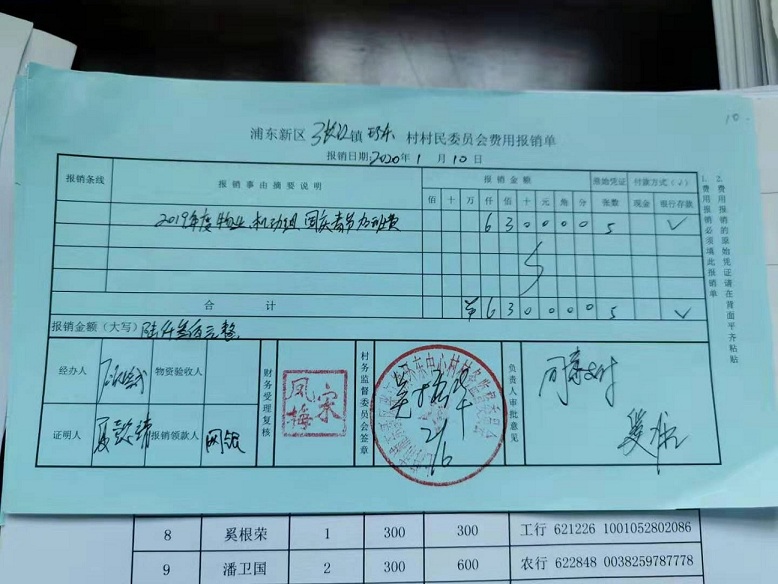 10.
浦东新区 张江 镇 环东 村村民委员会费用报销单
报销日期:2020年 1 月 10 日
报销条线 报销事由摘要说明 报销金额 原始凭证 付款方式(√)
佰 十 万 仟 佰 十 元 角 分 张数 现金 银行存款
2019年度物业、机动组 国庆 加班费 6 3 0 0 0 0 5 √
合 计 ¥ 6 3 0 0 0 0 5 √
报销金额(大写) 陆仟叁佰元整
经办人 物资验收人 财务受理复核 宋凤梅 村务监督委员会签章 负责人审批意见 同意支付
证明人 报销领款人 网银
1.费用报销必须填此报销单
2.费用报销的原始凭证请在背面平齐粘贴
8 奚根荣 1 300 300 工行 621226 1001052802086
9 潘卫国 2 300 600 农行 622848 0038259787778